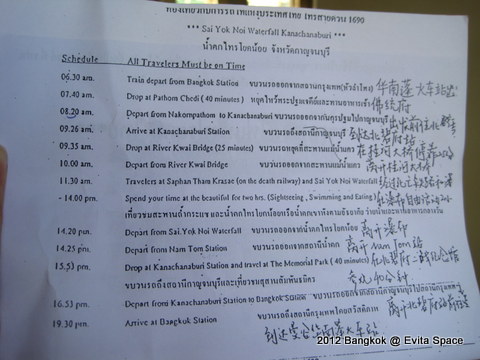 *** Sai Yok Noi Waterfall Kanachanaburi ***
น้ำตกไทรโยคน้อย จังหวัดกาญจนบุรี
Schedule All Travelers Must be on Time
06.30 am. Train depart from Bangkok Station ขบวนรถออกจากสถานกรุงเทพ(หัวลำโพง) 华南蓬火车站出
07.40 am. Drop at Pathom Chedi ( 40 minutes ) หยุดไหว้พระปฐมเจดีย์และทานอาหารเช้า 佛统府
08.20 am. Depart from Nakornpathom to Kanachanaburi
09.26 am. Arrive at Kanachanaburi Station ขบวนรถถึงสถานีกาญจนบุรี 到达北碧府站
09.35 am. Drop at River Kwai Bridge (25 minutes) ขบวนรถหยุดที่สะพานแม่น้ำแคว 在桂河大桥
10.00 am. Depart from River Kwai Bridge ขบวนรถออกจากสะพานแม่น้ำแคว 离开桂河大桥
11.30 am. Travelers at Saphan Tham Krasae (on the death railway) and Sai Yok Noi Waterfall
- 14.00 pm. Spend your time at the beautiful for two hrs. (Sightseeing , Swimming and Eating)
14.20 pm. Depart from Sai Yok Noi Waterfall ขบวนรถออกจากน้ำตกไทรโยคน้อย 离开瀑布
14.25 pm. Depart from Nam Tom Station ขบวนรถออกจากสถานีน้ำตก 离开 Nam Tom 站
15.53 pm. Drop at Kanachanaburi Station and travel at The Memorial Park ( 40 minutes)
ขบวนรถถึงสถานีกาญจนบุรีและเที่ยวชมสุสานสัมพันธมิตร 参观 40 分钟
16.53 pm. Depart from Kanachanaburi Station to Bangkok Station
19.30 pm. Arrive at Bangkok Station ขบวนรถถึงสถานีกรุงเทพโดยสวัสดิภาพ
2012 Bangkok @ Evita Space